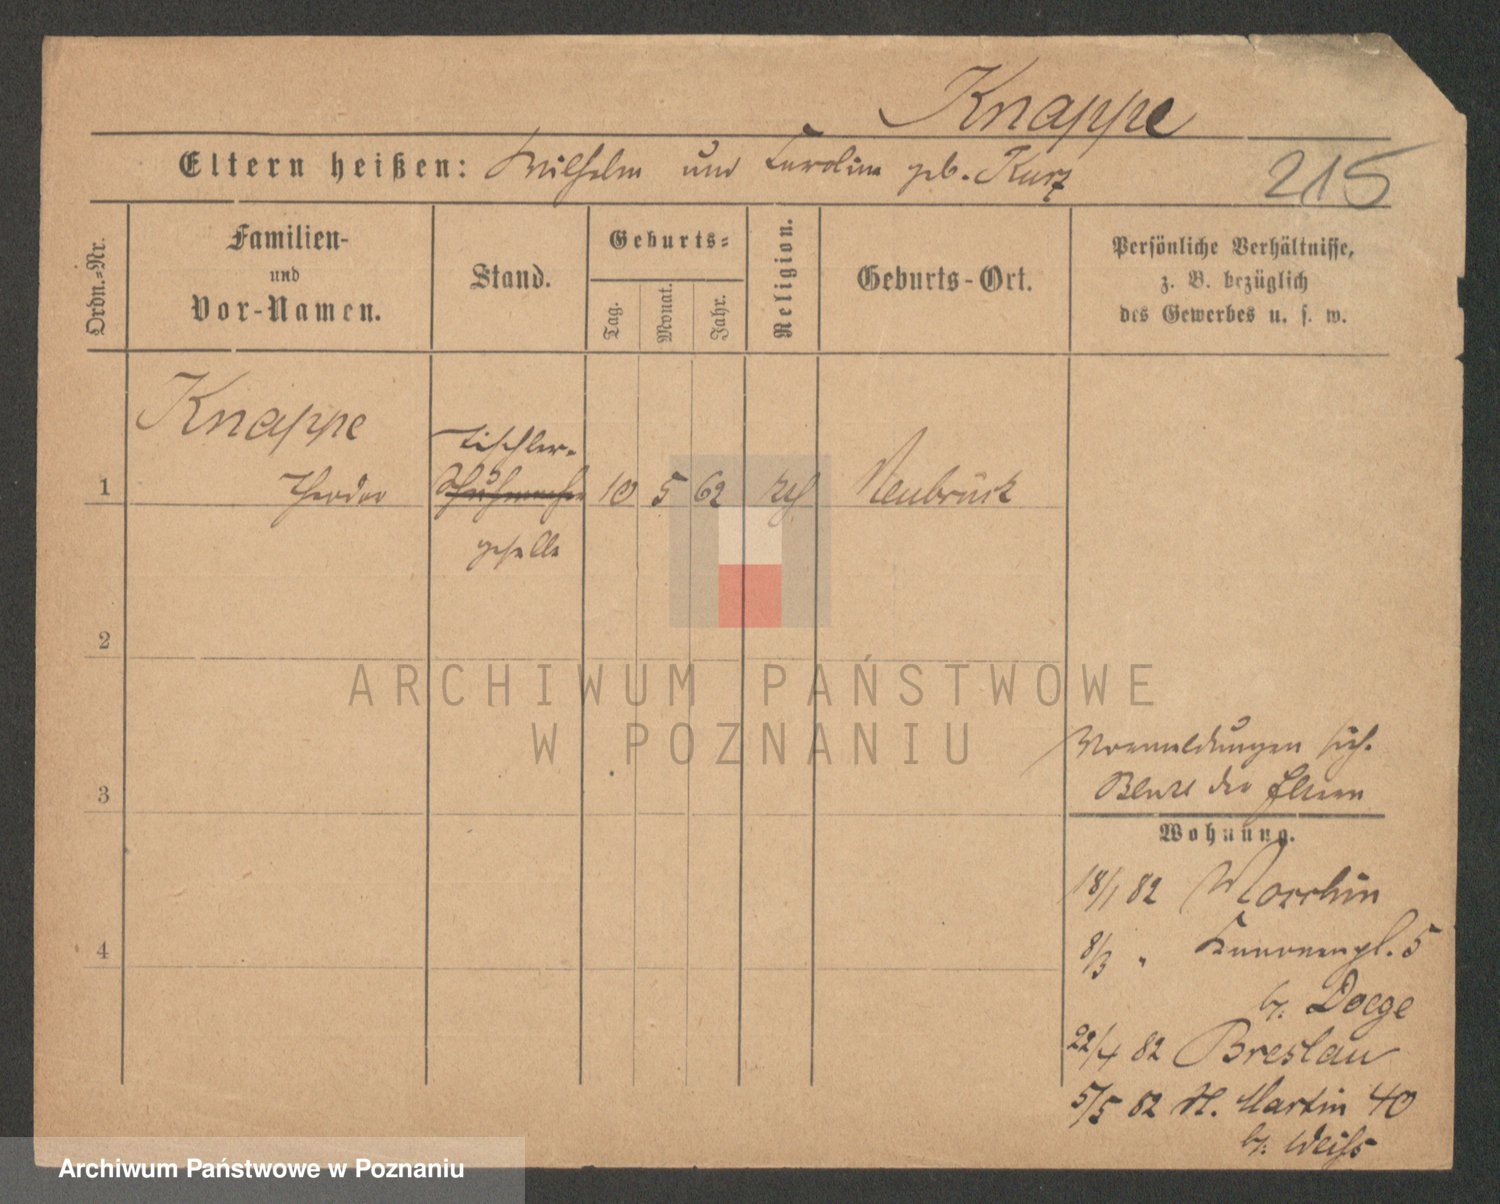 Knappe
Eltern heißen: Wilhelm und Caroline geb. Kurz
215
Ordn.-Nr.
Familien-
und
Vor-Namen.
Stand.
Geburts-
Tag.
Monat.
Jahr.
Religion.
Geburts-Ort.
Persönliche Verhältnisse,
z. B. bezüglich
des Gewerbes u. s. w.
Knappe
Tischler-
1 Theodor Schuhmacher 10 5 62 Neubrück
geselle
2
3
4
ARCHIWUM PAŃSTWOWE
W POZNANIU
Vormeldungen
der Eltern
Wohnung.
18/1 82
8/3 " 5
b. Doege
22/4 82 Breslau
5/5 82 St. Martin 40
b. Weiss
Archiwum Państwowe w Poznaniu